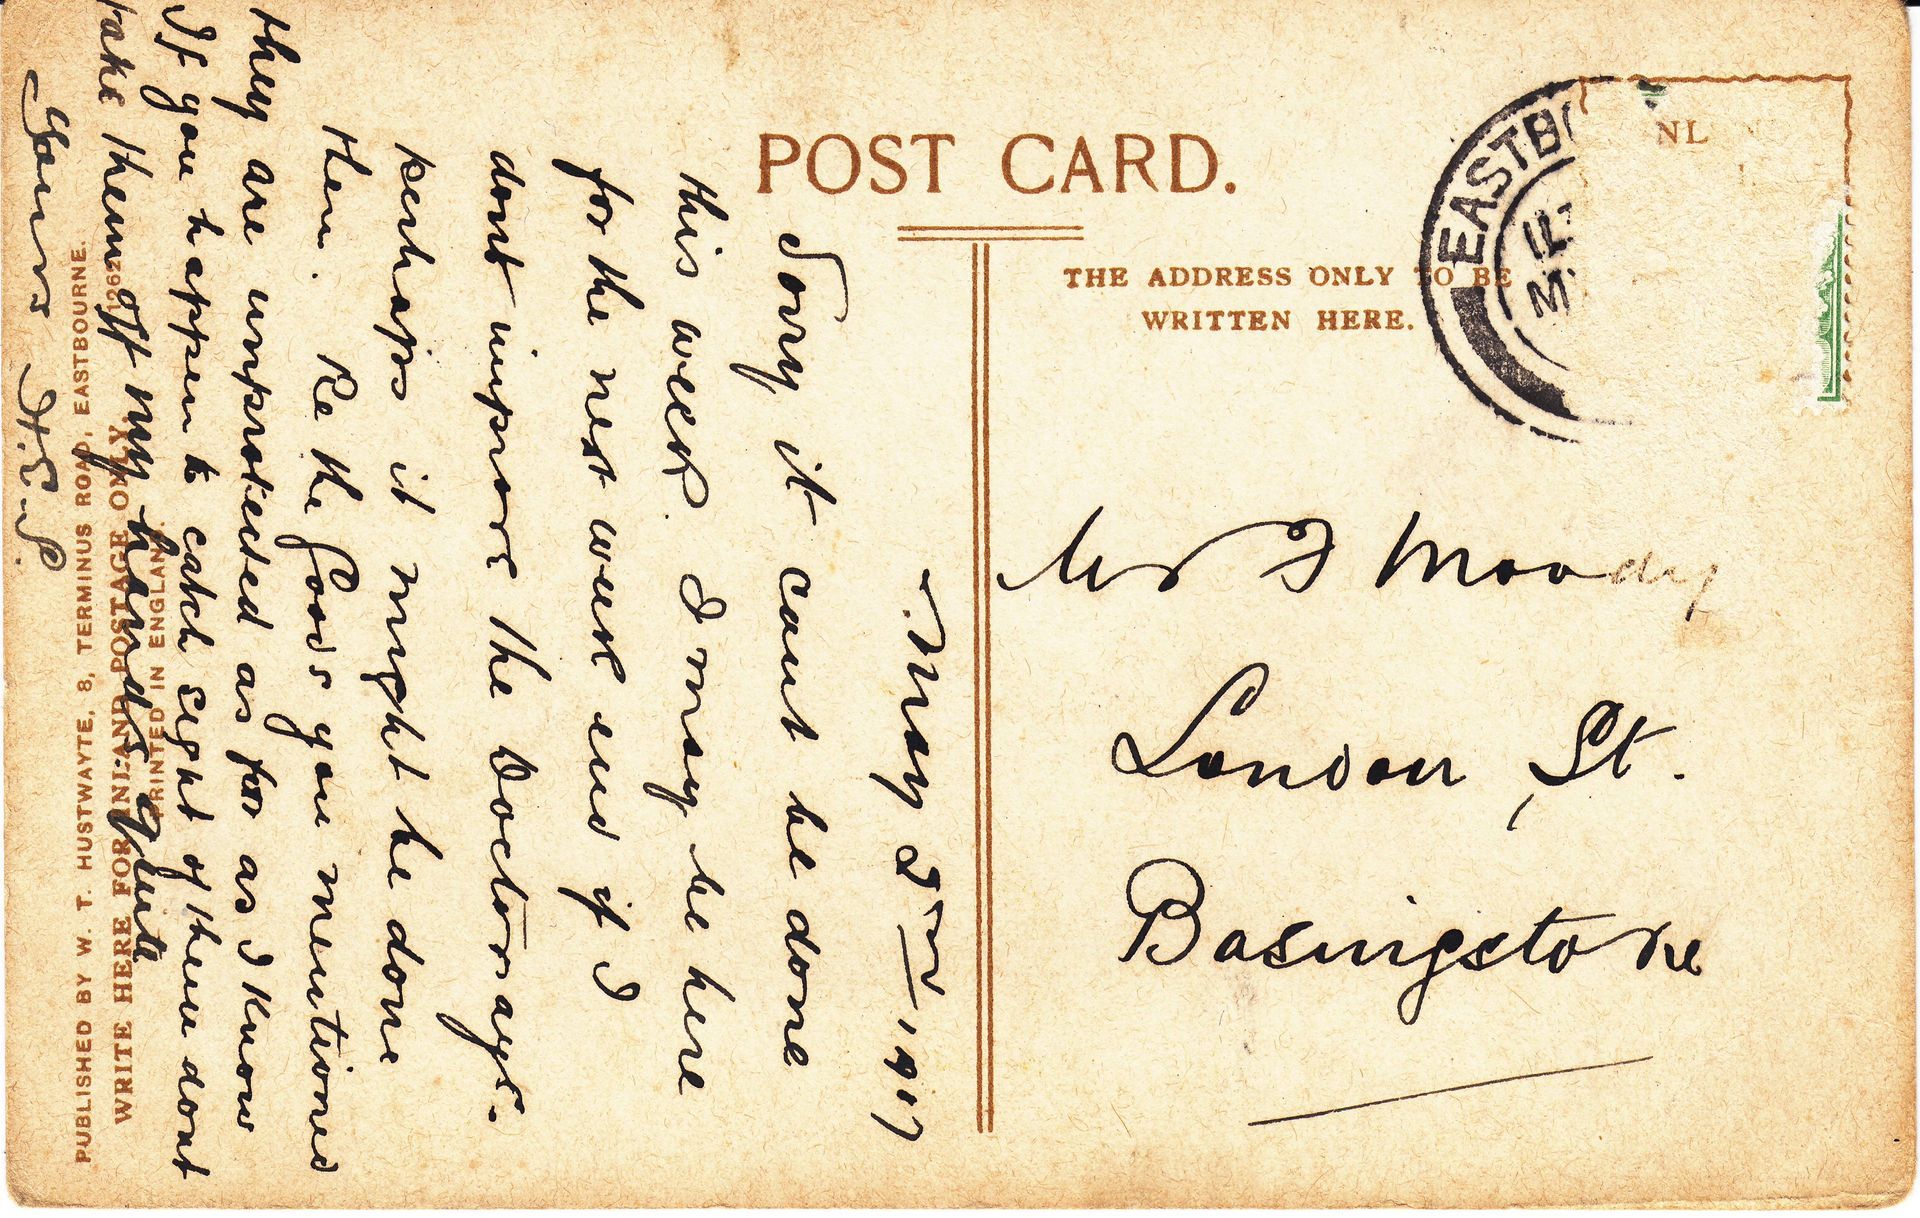 POST CARD.
THE ADDRESS ONLY TO BE
WRITTEN HERE.
NL
EASTBO
Mr F Moody
London St.
Basingstoke
May 2nd 1917
Sorry it cant be done
this week. I may be here
for the next week end if I
dont improve the Doctor says.
perhaps it might be done
then. Re the Goods you mentioned
they are unprotected as far as I know
If you happen to catch sight of them dont
take them off my hands quite
Yours H.E.P.
PRINTED IN ENGLAND.
WRITE HERE FOR INLAND POSTAGE ONLY
PUBLISHED BY W. T. HUSTWAYTE, 8, TERMINUS ROAD, EASTBOURNE.